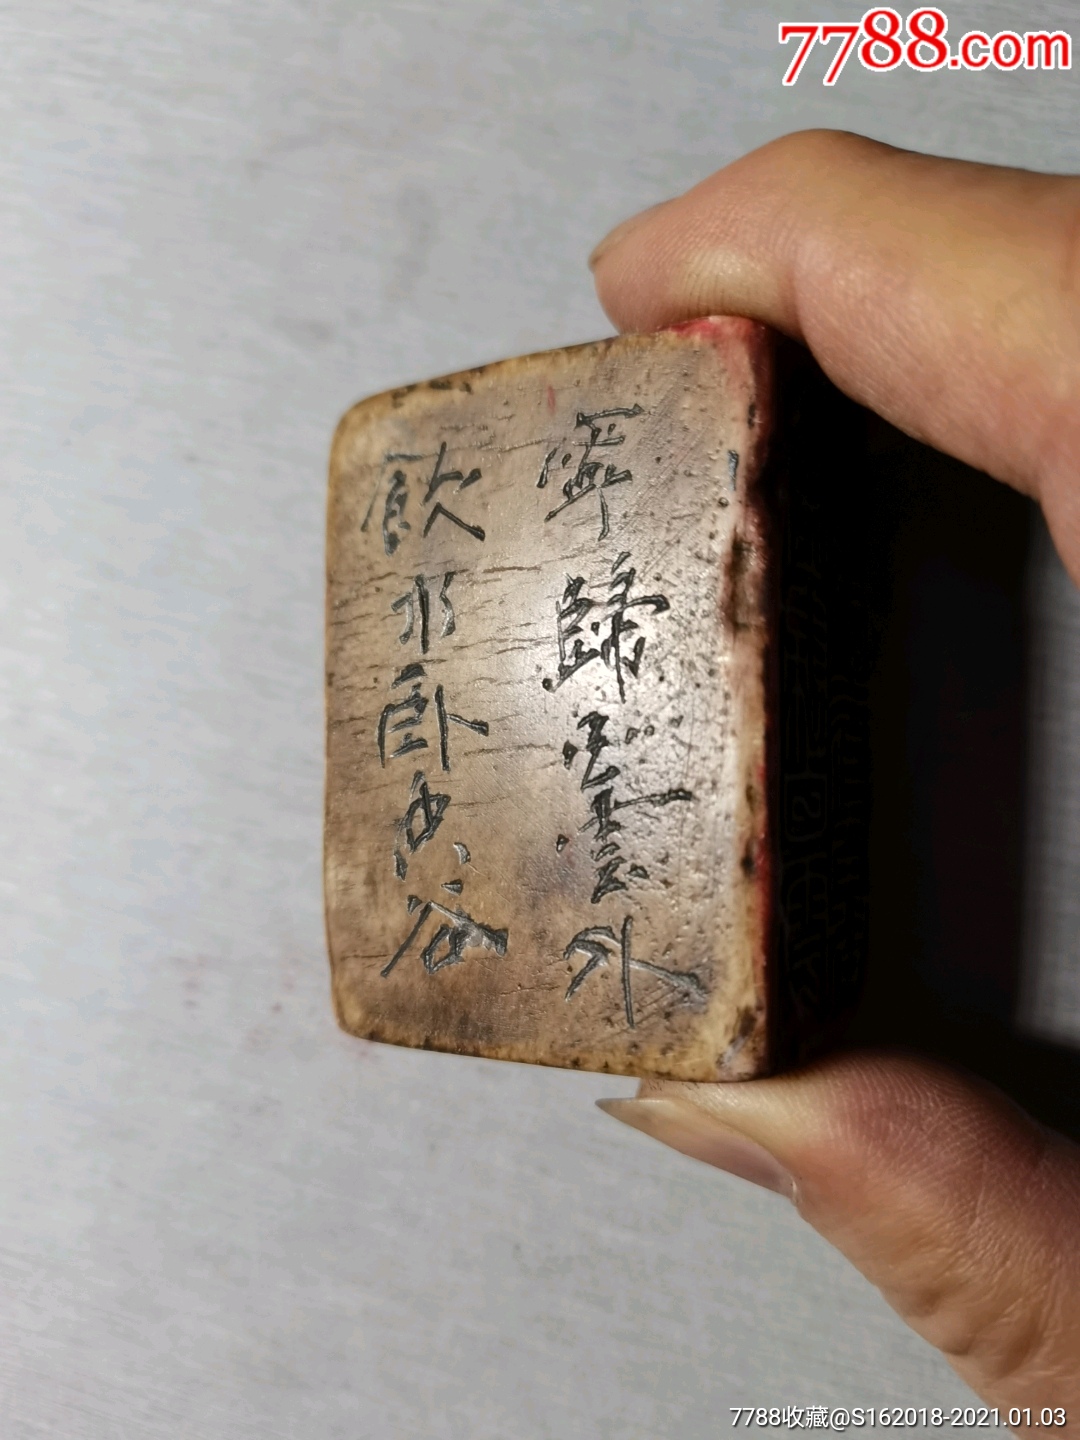 7788.com
寧歸白雲外
飲水臥空谷
7788收藏@S162018-2021.01.03